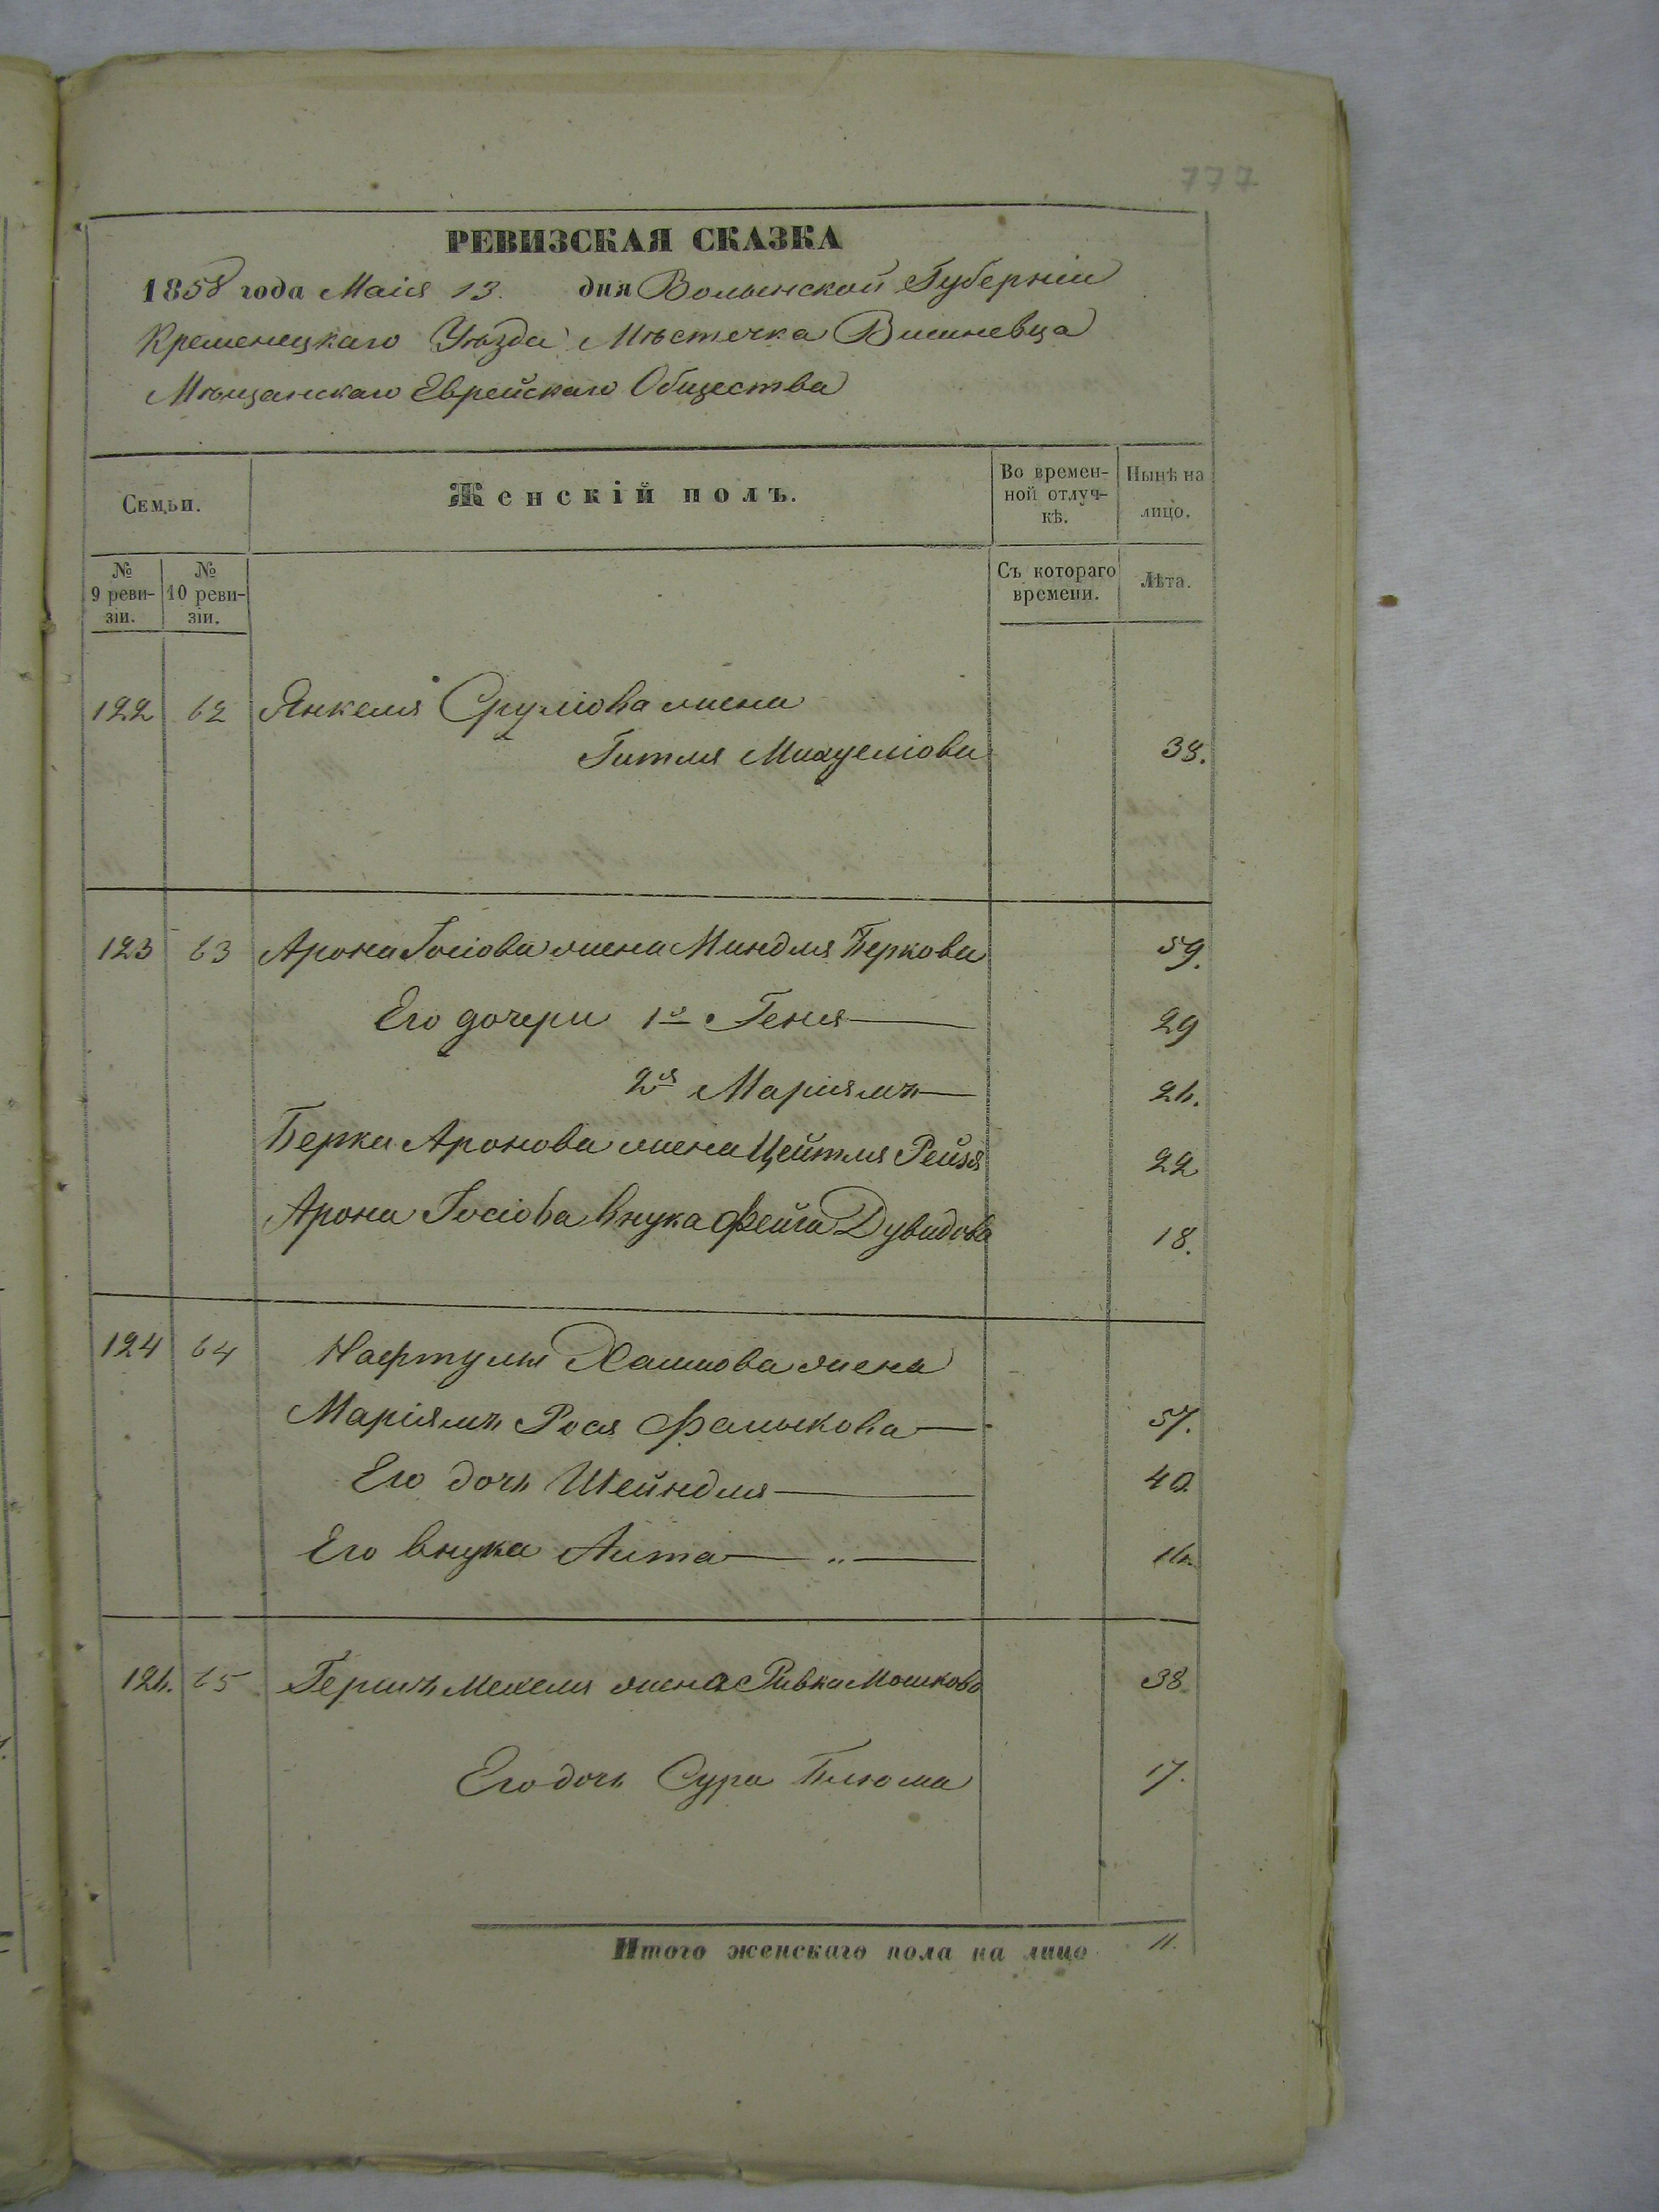 777
РЕВИЗСКАЯ СКАЗКА
1858 года Маія 13. дня Волынской Губерніи
Кременецкаго Уѣзда Мѣстечка Вишневца
Мѣщанскаго Еврейскаго Общества
Семьи. Женскій полъ. Во времен-ной отлуч-кѣ. Нынѣ на лицо.
№ 9 реви-зіи. № 10 реви-зіи. Съ котораго времени. Лѣта.
122 62 Янкеля Сруліова жена
Гитля Михуеліова 38.
123 63 Арона Іосіова жена Миндля Беркова 59.
Его дочери 1я Геня 29
2я Маріямъ 26.
Берка Аронова жена Цейтля Рейзя 22
Арона Іосіова внука Фейга Дувидова 18.
124 64 Нафтулы Хаимова жена
Маріямъ Рося Фалькова 57.
Его дочь Шейндля 40
Его внука Аита 16.
126. 65 Гершъ Мехеля жена Ривка Мошкова 38
Его дочь Сура Блюма 17.
Итого женскаго пола на лицо 11.